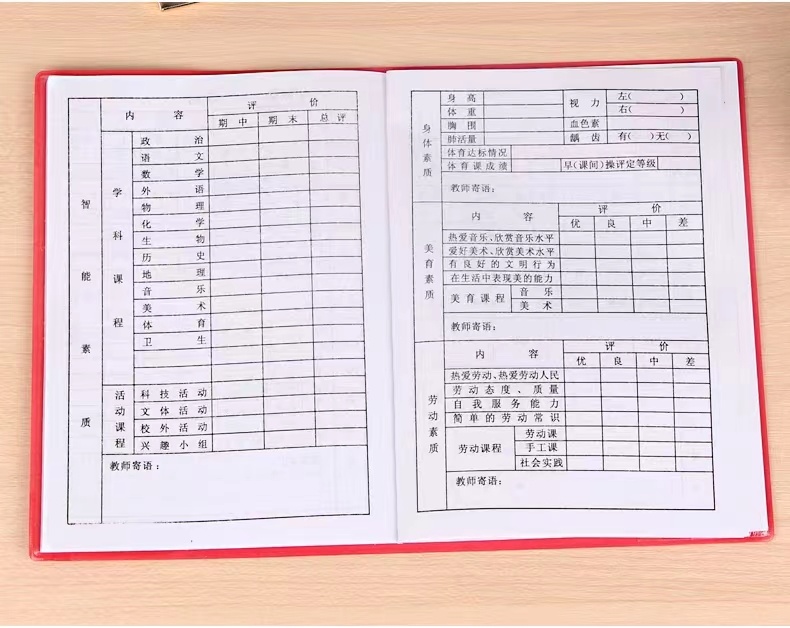 智能素质
内容 评价
期中 期末 总评
学科课程
政治
语文
数学
外语
物理
化学
生物
历史
地理
音乐
美术
体育
卫生
活动课程
科技活动
文体活动
校外活动
兴趣小组
教师寄语：
身体素质
身高 视力 左( )
体重 右( )
胸围 血色素
肺活量 龋齿 有( )无( )
体育达标情况
体育课成绩 早(课间)操评定等级
教师寄语：
美育素质
内容 评价
优 良 中 差
热爱音乐、欣赏音乐水平
爱好美术、欣赏美术水平
有良好的文明行为
在生活中表现美的能力
美育课程 音乐
美术
教师寄语：
劳动素质
内容 评价
优 良 中 差
热爱劳动、热爱劳动人民
劳动态度、质量
自我服务能力
简单的劳动常识
劳动课程 劳动课
手工课
社会实践
教师寄语：